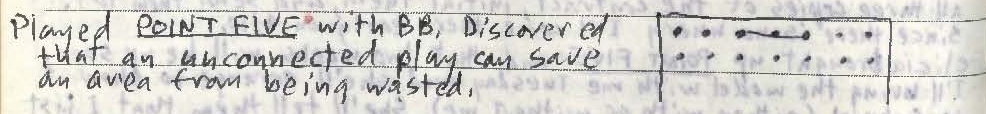 Played POINT FIVE with BB, Discovered
that an unconnected play can save
an area from being wasted,